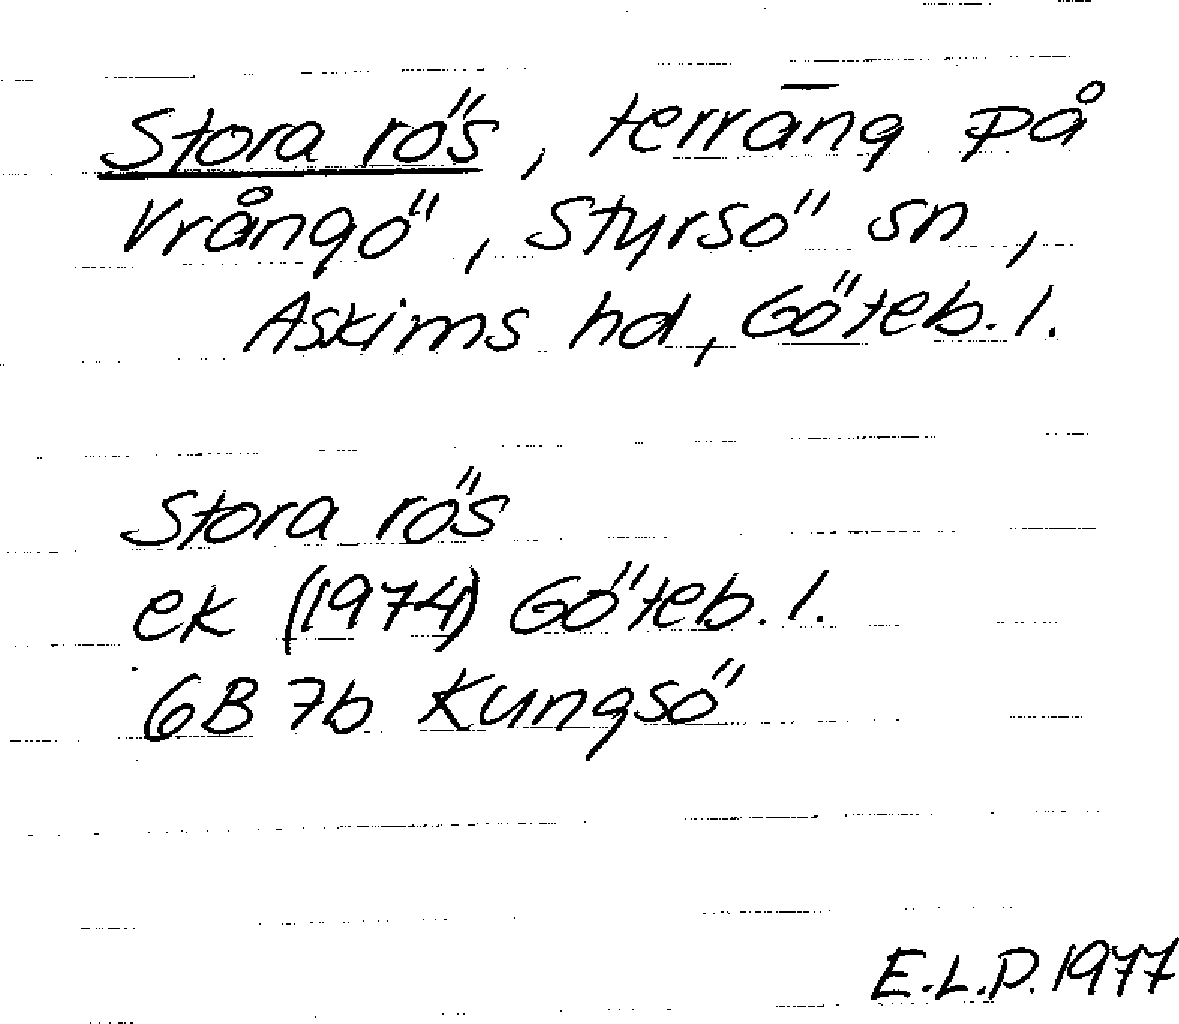 Stora rös, terräng på
Vrångö, Styrsö sn,
Askims hd, Göteb. l.
Stora rös
ek (1974) Göteb. l.
6B 7b Kungsö
E.L.P. 1977